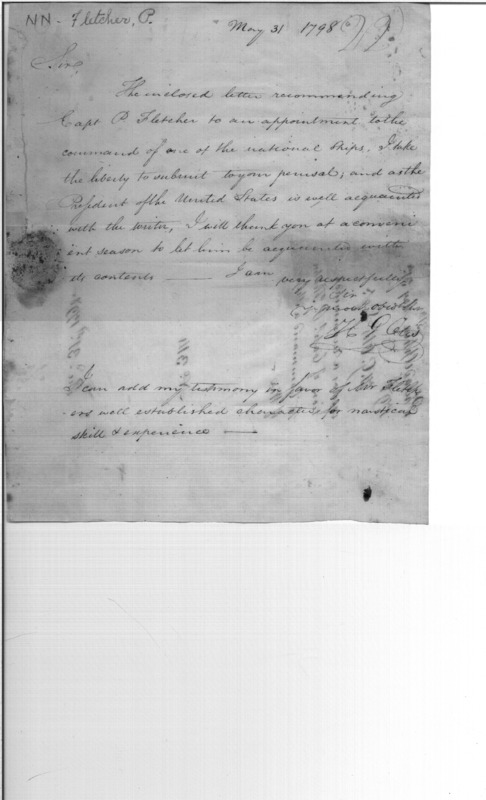 NN - Fletcher, P.
May 31 1798
Sir
The inclosed letter recommending
Capt P. Fletcher to an appointment to the
command of one of the national ships. I take
the liberty to submit to your perusal; and as the
President of the United States is well acquainted
with the writer, I will thank you at a conveni
ent season to let him be acquainted with
its contents — I am very respectfully
Sir
Your obed Ser
H G Otis
I can add my testimony in favor of Mr Fletch
ers well established character for nautical
skill & experience —